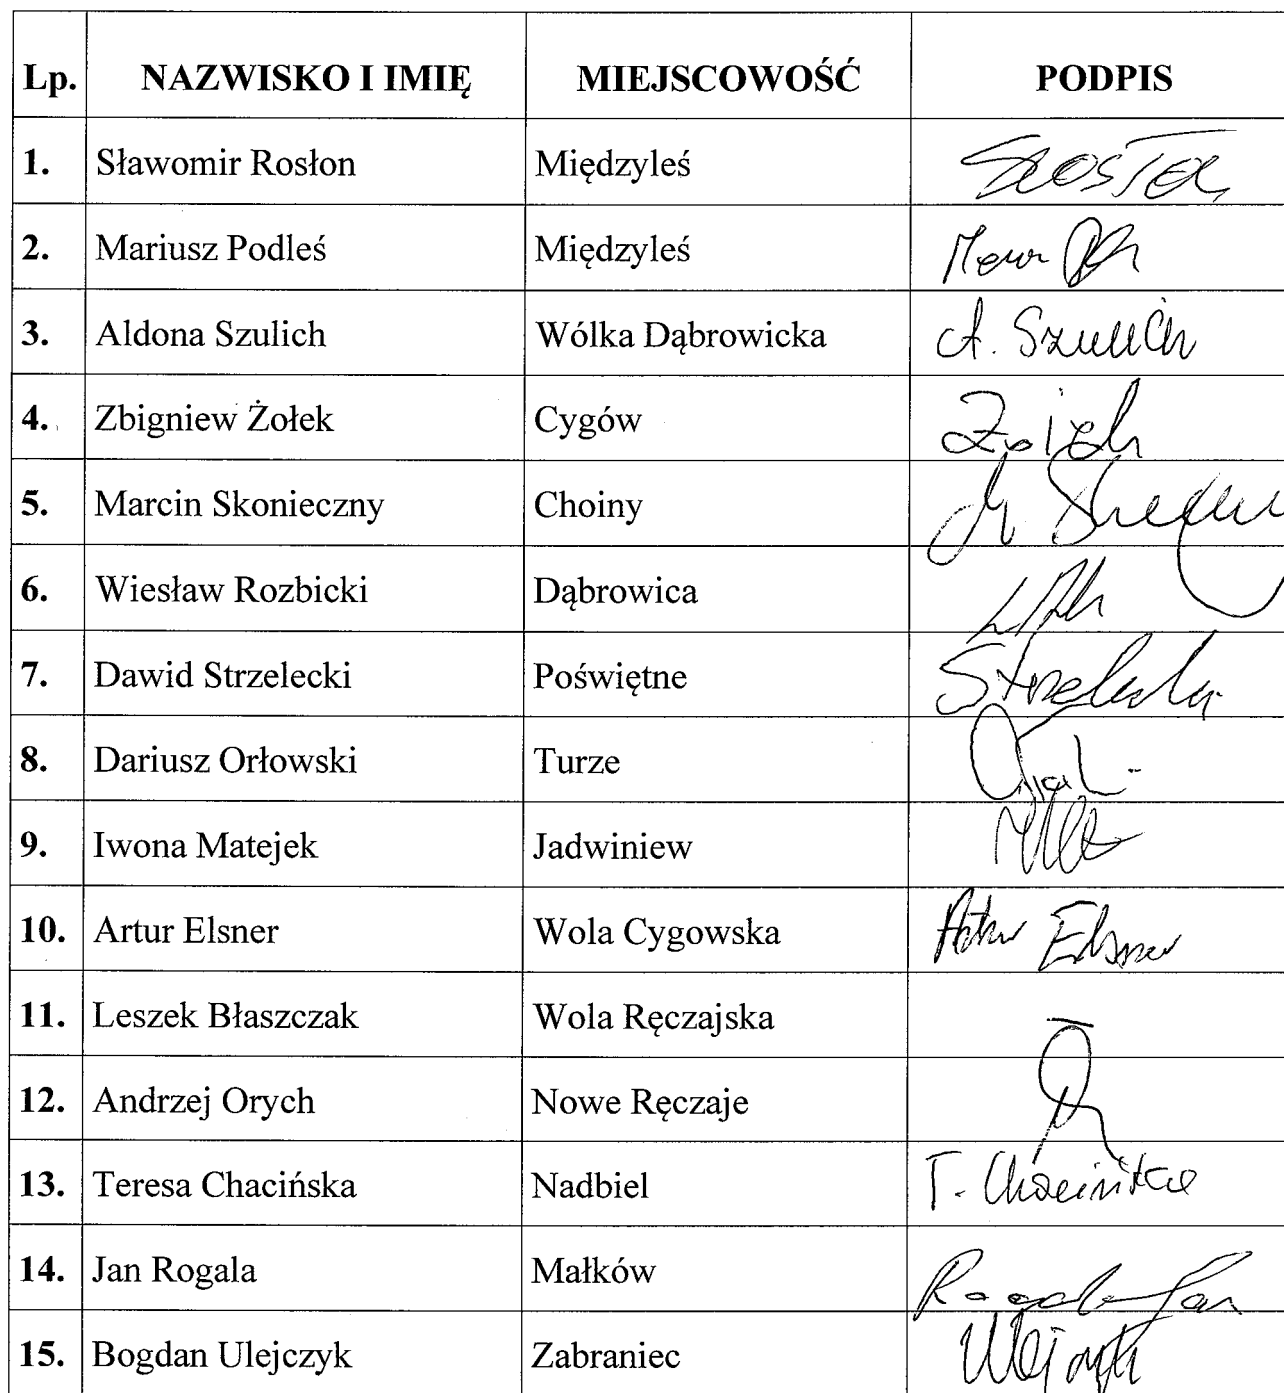 Lp. NAZWISKO I IMIĘ MIEJSCOWOŚĆ PODPIS
1. Sławomir Rosłon Międzyleś
2. Mariusz Podleś Międzyleś
3. Aldona Szulich Wólka Dąbrowicka A. Szulich
4. Zbigniew Żołek Cygów
5. Marcin Skonieczny Choiny
6. Wiesław Rozbicki Dąbrowica
7. Dawid Strzelecki Poświętne Strzelecki
8. Dariusz Orłowski Turze
9. Iwona Matejek Jadwiniew
10. Artur Elsner Wola Cygowska Artur Elsner
11. Leszek Błaszczak Wola Ręczajska
12. Andrzej Orych Nowe Ręczaje
13. Teresa Chacińska Nadbiel T. Chacińska
14. Jan Rogala Małków Rogala Jan
15. Bogdan Ulejczyk Zabraniec Ulejczyk